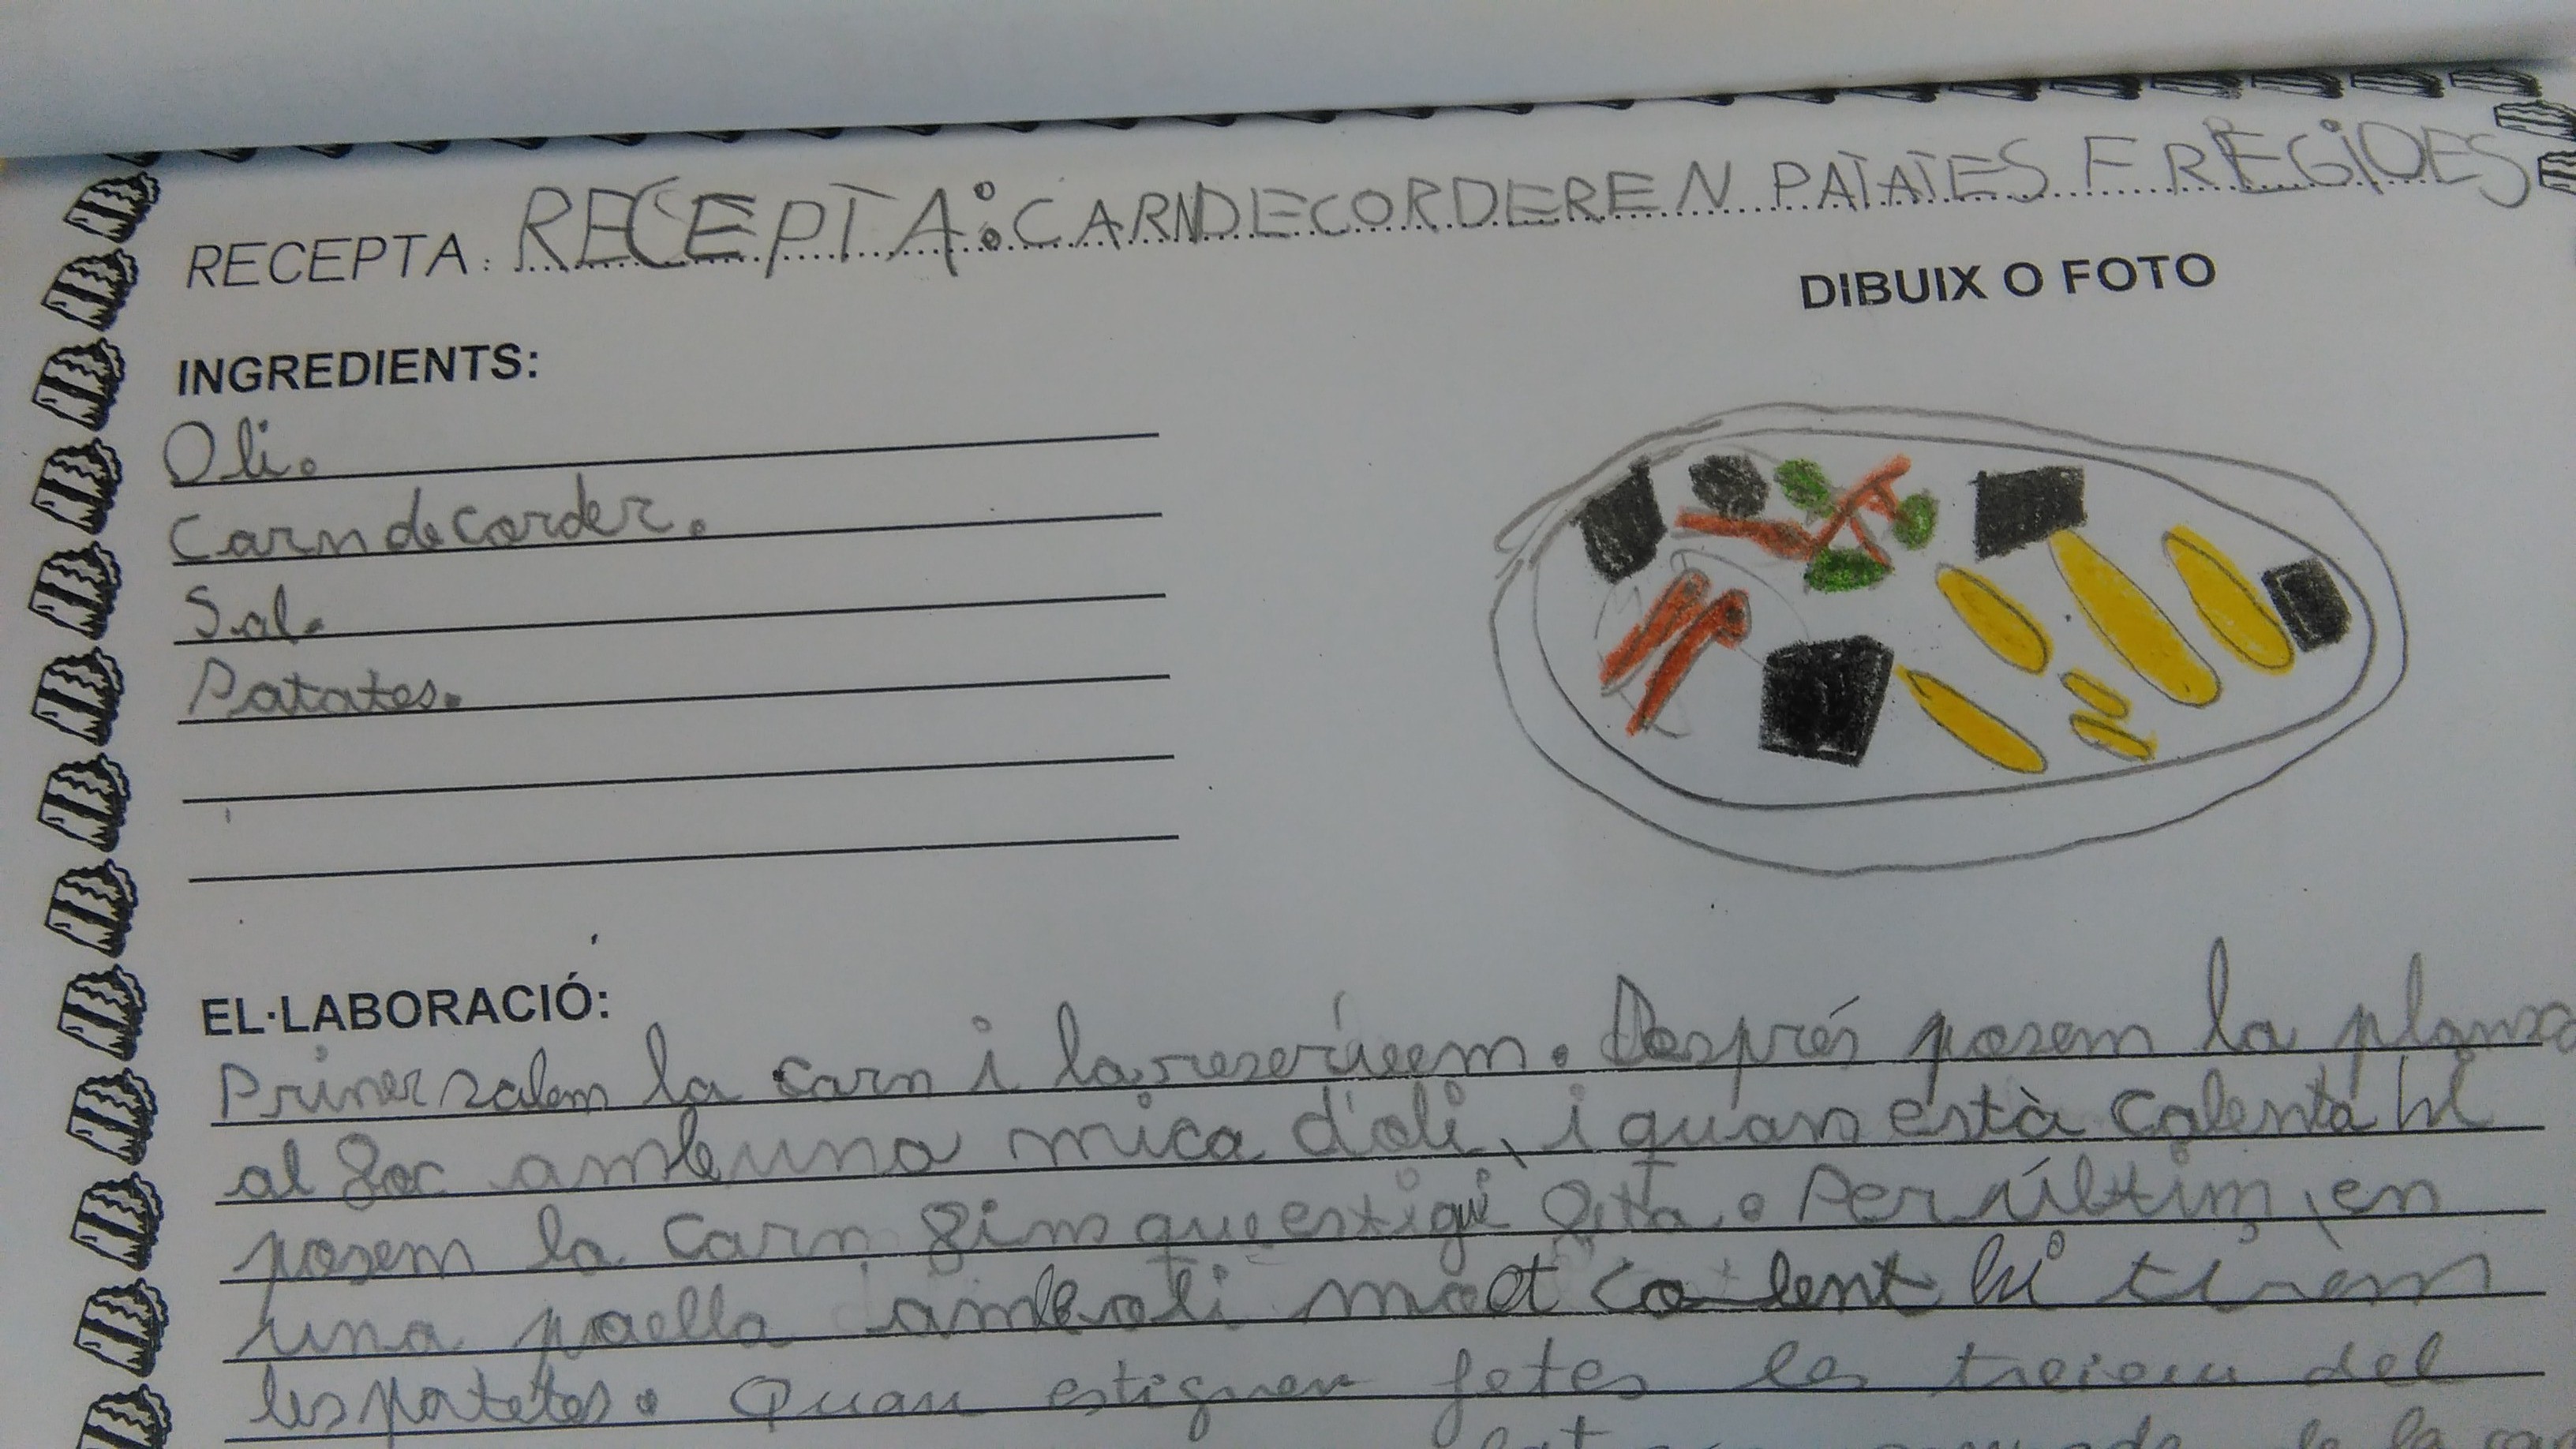 RECEPTA: RECEPTA: CARNDECORDEREN PATATES FREGIDES
DIBUIX O FOTO
INGREDIENTS:
Oli.
Carn de corder.
Sal.
Patates.
EL·LABORACIÓ:
Primer salem la carn i la reservem. Després posem la planxa
al foc amb una mica d'oli, i quan està calenta hi
posem la carn fins que estigui feta. Per últim, en
una paella amb oli molt calent hi tirem
les patates. Quan estiguen fetes les treieu del
de la